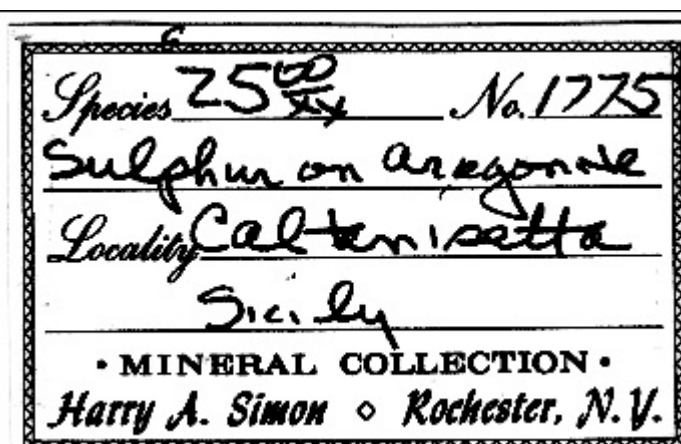 Species 25 00/xx No. 1775
Sulphur on aragonite
Locality Caltanisetta
Sicily
• MINERAL COLLECTION •
Harry A. Simon ◇ Rochester, N.Y.